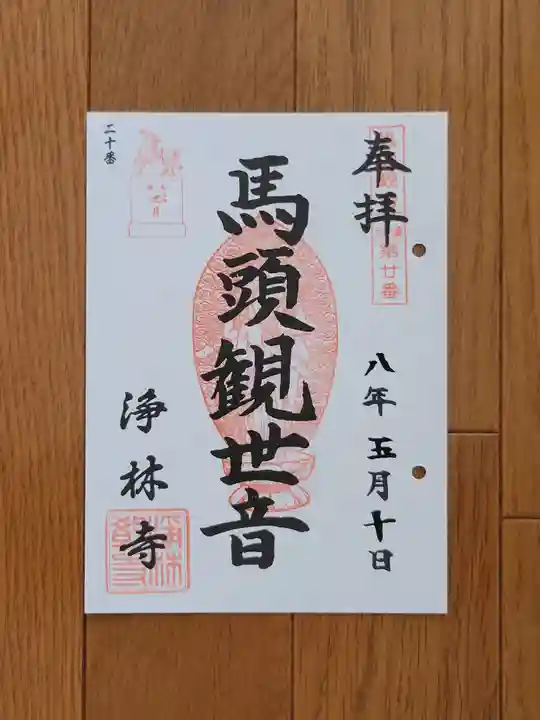 奉拝
第廿番
八年五月十日
馬頭観世音
二十番
浄林寺